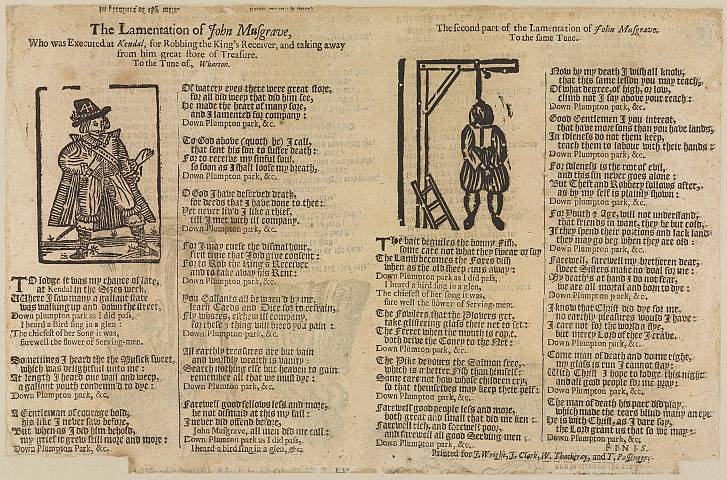 The Lamentation of John Musgrave,
Who was Executed at Kendal, for Robbing the King's Receiver, and taking away
from him great store of Treasure.
To the Tune of, Wharton.
TO lodge it was my chance of late,
at Kendal in the Sizes week,
Where I saw many a gallant state
was walking up and down the street,
Down plumpton park as I did pass,
I heard a bird sing in a glen :
The chiefest of her Song it was,
farewell the flower of Serving-men.
Sometimes I heard the Musick sweet,
which was delightful unto me :
At length I heard one wail and weep,
a gallant youth condemn'd to dye :
Down Plumpton Park, &c.
A Gentleman of courage bold,
his like I never saw before,
But when as I did him behold,
my grief it grew still more and more :
Down Plumpton Park, &c.
Of watery eyes there were great store,
for all did weep that did him see,
He made the heart of many sore,
and I lamented for company :
Down Plumpton park, &c.
To God above (quoth he) I call,
that sent his son to suffer death :
For to receive my sinful soul,
so soon as I shall loose my breath,
Down Plumpton park, &c.
O God I have deserved death,
for deeds that I have done to thee :
Yet never liv'd I like a thief,
till I met with ill company.
Down Plumpton park, &c.
For I may curse the dismal hour,
first time that I did give consent :
For to Rob the King's Receiver
and to take away his Rent :
Down Plumpton Park, &c.
You Gallants all be warn'd by me,
learn Cards and Dice for to refrain,
Fly whores, eschew ill company,
for these 3 things will breed you pain :
Down Plumpton Park, &c.
All earthly treasures are but vain
and worldly wealth is vanity :
Search nothing else but heaven to gain
remember all that we must dye :
Down Plumpton Park, &c.
Farewell good fellows less and more,
be not dismaid at this my fall :
I never did offend before,
John Musgrave, all men did me call :
Down Plumpton Park as I did pass,
I heard a bird sing in a glen, &c.
The second part of the Lamentation of John Musgrave.
To the same Tune.
THe bait beguiles the bonny Fish,
some care not what they swear or say
The Lamb becomes the Foxes dish
when as the old sheep runs away :
Down Plumpton Park as I did pass,
I heard a bird sing in a glen,
The chiefest of her song it was,
fare well the flower of Serving-men.
The Fowlers that the Plovers get,
take glistering glass their net to set :
The Ferret when the mouth is cop't,
doth drive the Coney to the Net :
Down Plumpton Park, &c.
The Pike devoures the Salmon free,
which is a better Fish than himself :
Some care not how whose children cry,
so that themselves may keep their pelf :
Down Plumpton Park, &c.
Farewell good people less and more,
both great and small that did me ken :
Farewell rich, and farewell poor,
and farewell all good Serving-men ;
Down Plumpton Park, &c.
Now by my death I wish all know,
that this same lesson you may teach,
Of what degree, of high, or low,
climb not I say above your reach :
Down Plumpton Park, &c.
Good Gentlemen I you intreat,
that have more sons than you have lands,
In idleness do not them keep,
teach them to labour with their hands :
Down Plumpton Park, &c.
For idleness is the root of evil,
and this sin never goes alone :
But Theft and Robbery follows after,
as by my self is plainly shown :
Down Plumpton park, &c.
For Youth & Age, will not understand,
that friends in want, they be but cold,
If they spend their portions and lack land
they may go beg when they are old :
Down Plumpton park, &c.
Farewell, farewell my brethren dear,
sweet Sisters make no doal for me :
My death's at hand I do not fear,
we are all mortal and born to dye :
Down Plumpton park, &c.
I know that Christ did dye for me,
no earthly pleasures would I have :
I care not for the world a flye,
but mercy Lord of thee I crave.
Down Plumpton Park, &c.
Come man of death and do me right,
my glass is run I cannot stay :
With Christ I hope to lodge this night
and all good people for me pray :
Down Plumpton Park, &c.
The man of death his part did play,
which made the tears blind many an eye
He is with Christ, as I dare say,
the Lord grant us that so we may :
Down Plumpton Park, &c.
FINIS.
Printed for J. Wright, J. Clark, W. Thackeray, and T. Passenger.